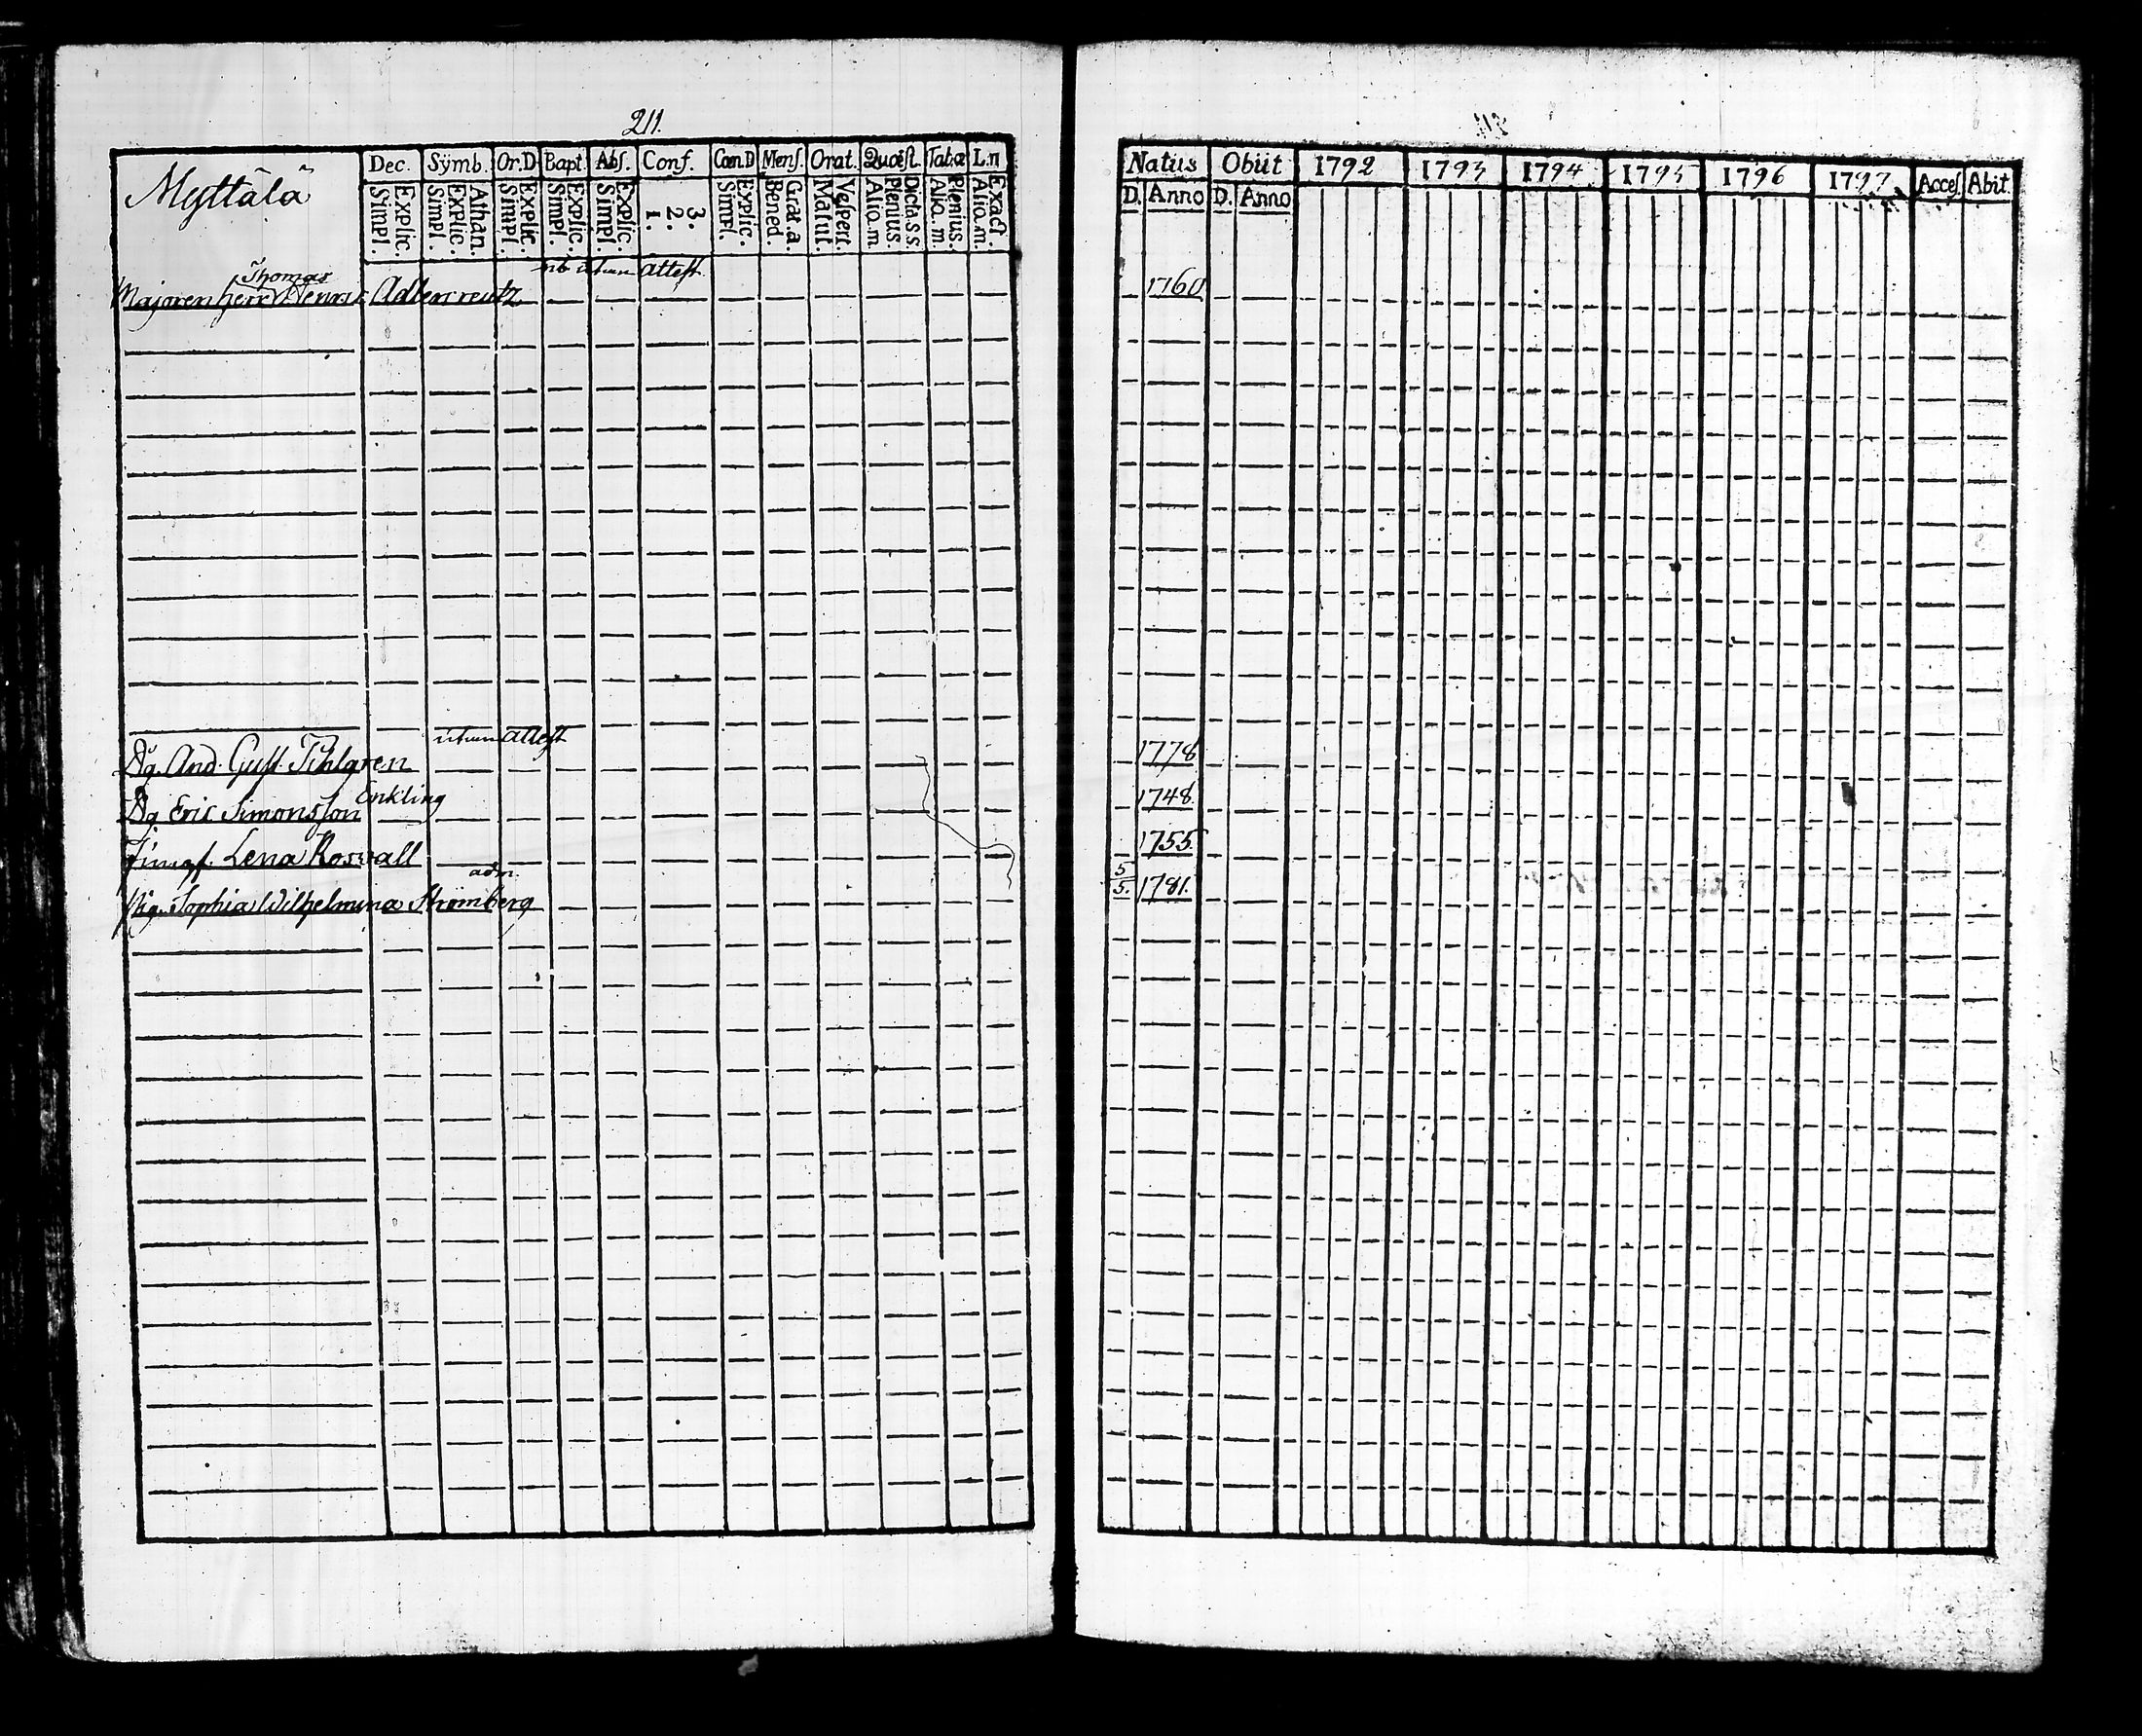 211.
Myttälä
Dec. Symb. Or.D. Bapt. Abſ. Conf. Cœn.D Menſ. Orat. Quœſt. Tab.œ L.n
Explic. Simpl. Athan. Explic. Simpl. Explic. Simpl. Explic. Simpl. Explic. Simpl. 3. 2. 1. Explic. Simpl. Grat.a. Bened. Veſpert. Matut. Dicta.s.s. Plenius. Alio.m. Plenius. Alio.m. Exact. Alio.m.
utan atteſt.
Thomas
Majoren herr Henric Adlercreutz
utan atteſt
Dg. And. Guſt. Tihlgren
Enkling
Dg Eric Simonsſon
Jungf. Lena Roswall
adm.
Pig. Sophia Wilhelmina Strömberg
Natus Obiit 1792 1793 1794 1795 1796 1797 Acceſ Abit.
D. Anno D. Anno
1760
1778
1748.
1755.
5/5. 1781.